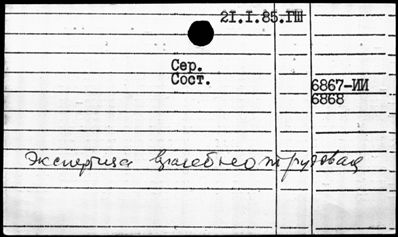 21.I.85.ГШ
Сер.
Сост.
6867-ИИ
6868
Экспертиза врачебно трудовая